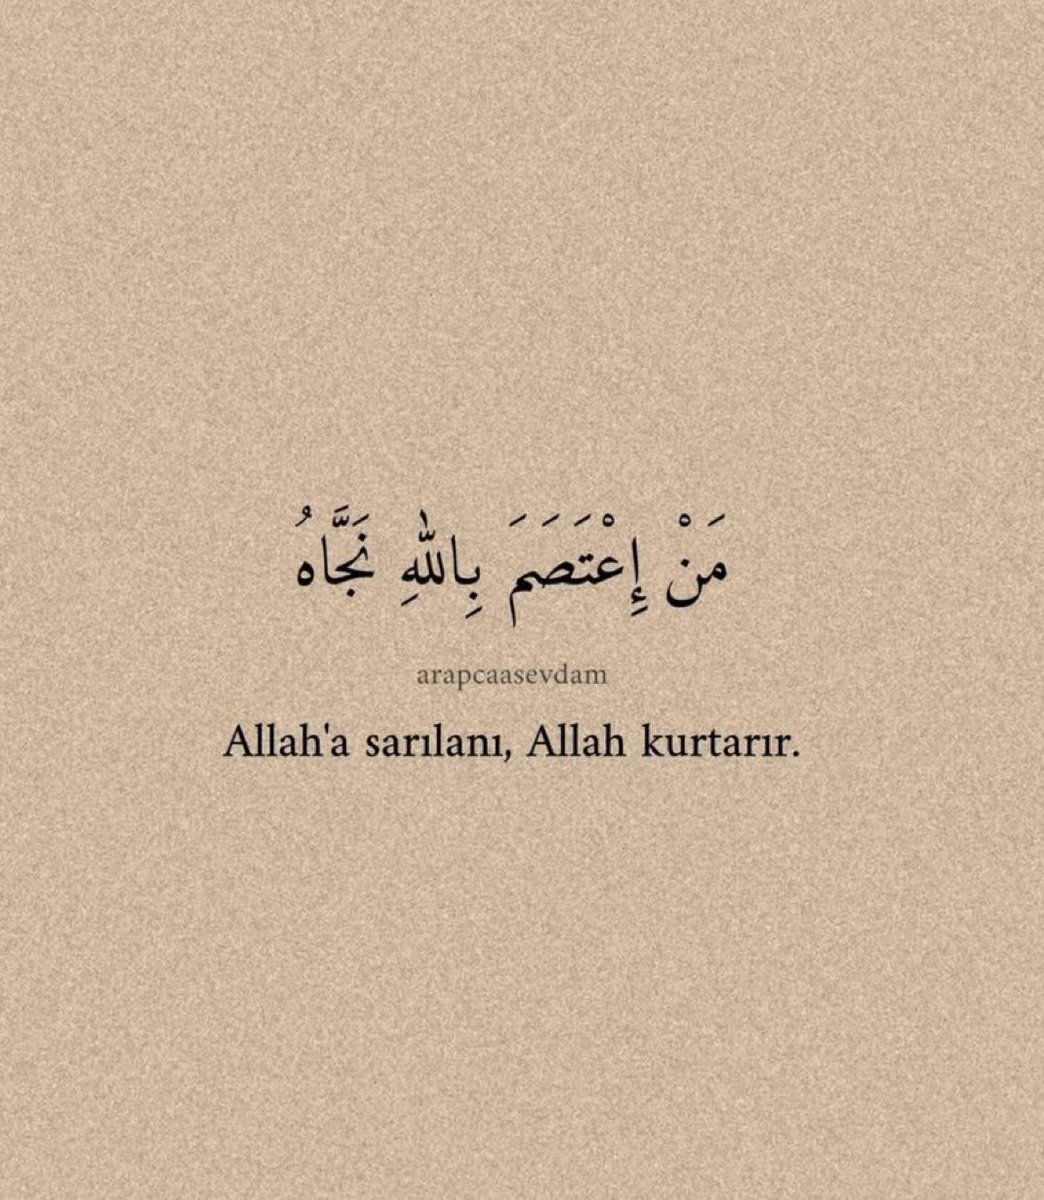 مَنْ إِعْتَصَمَ بِاللّٰهِ نَجَّاهُ
arapcaasevdam
Allah'a sarılanı, Allah kurtarır.